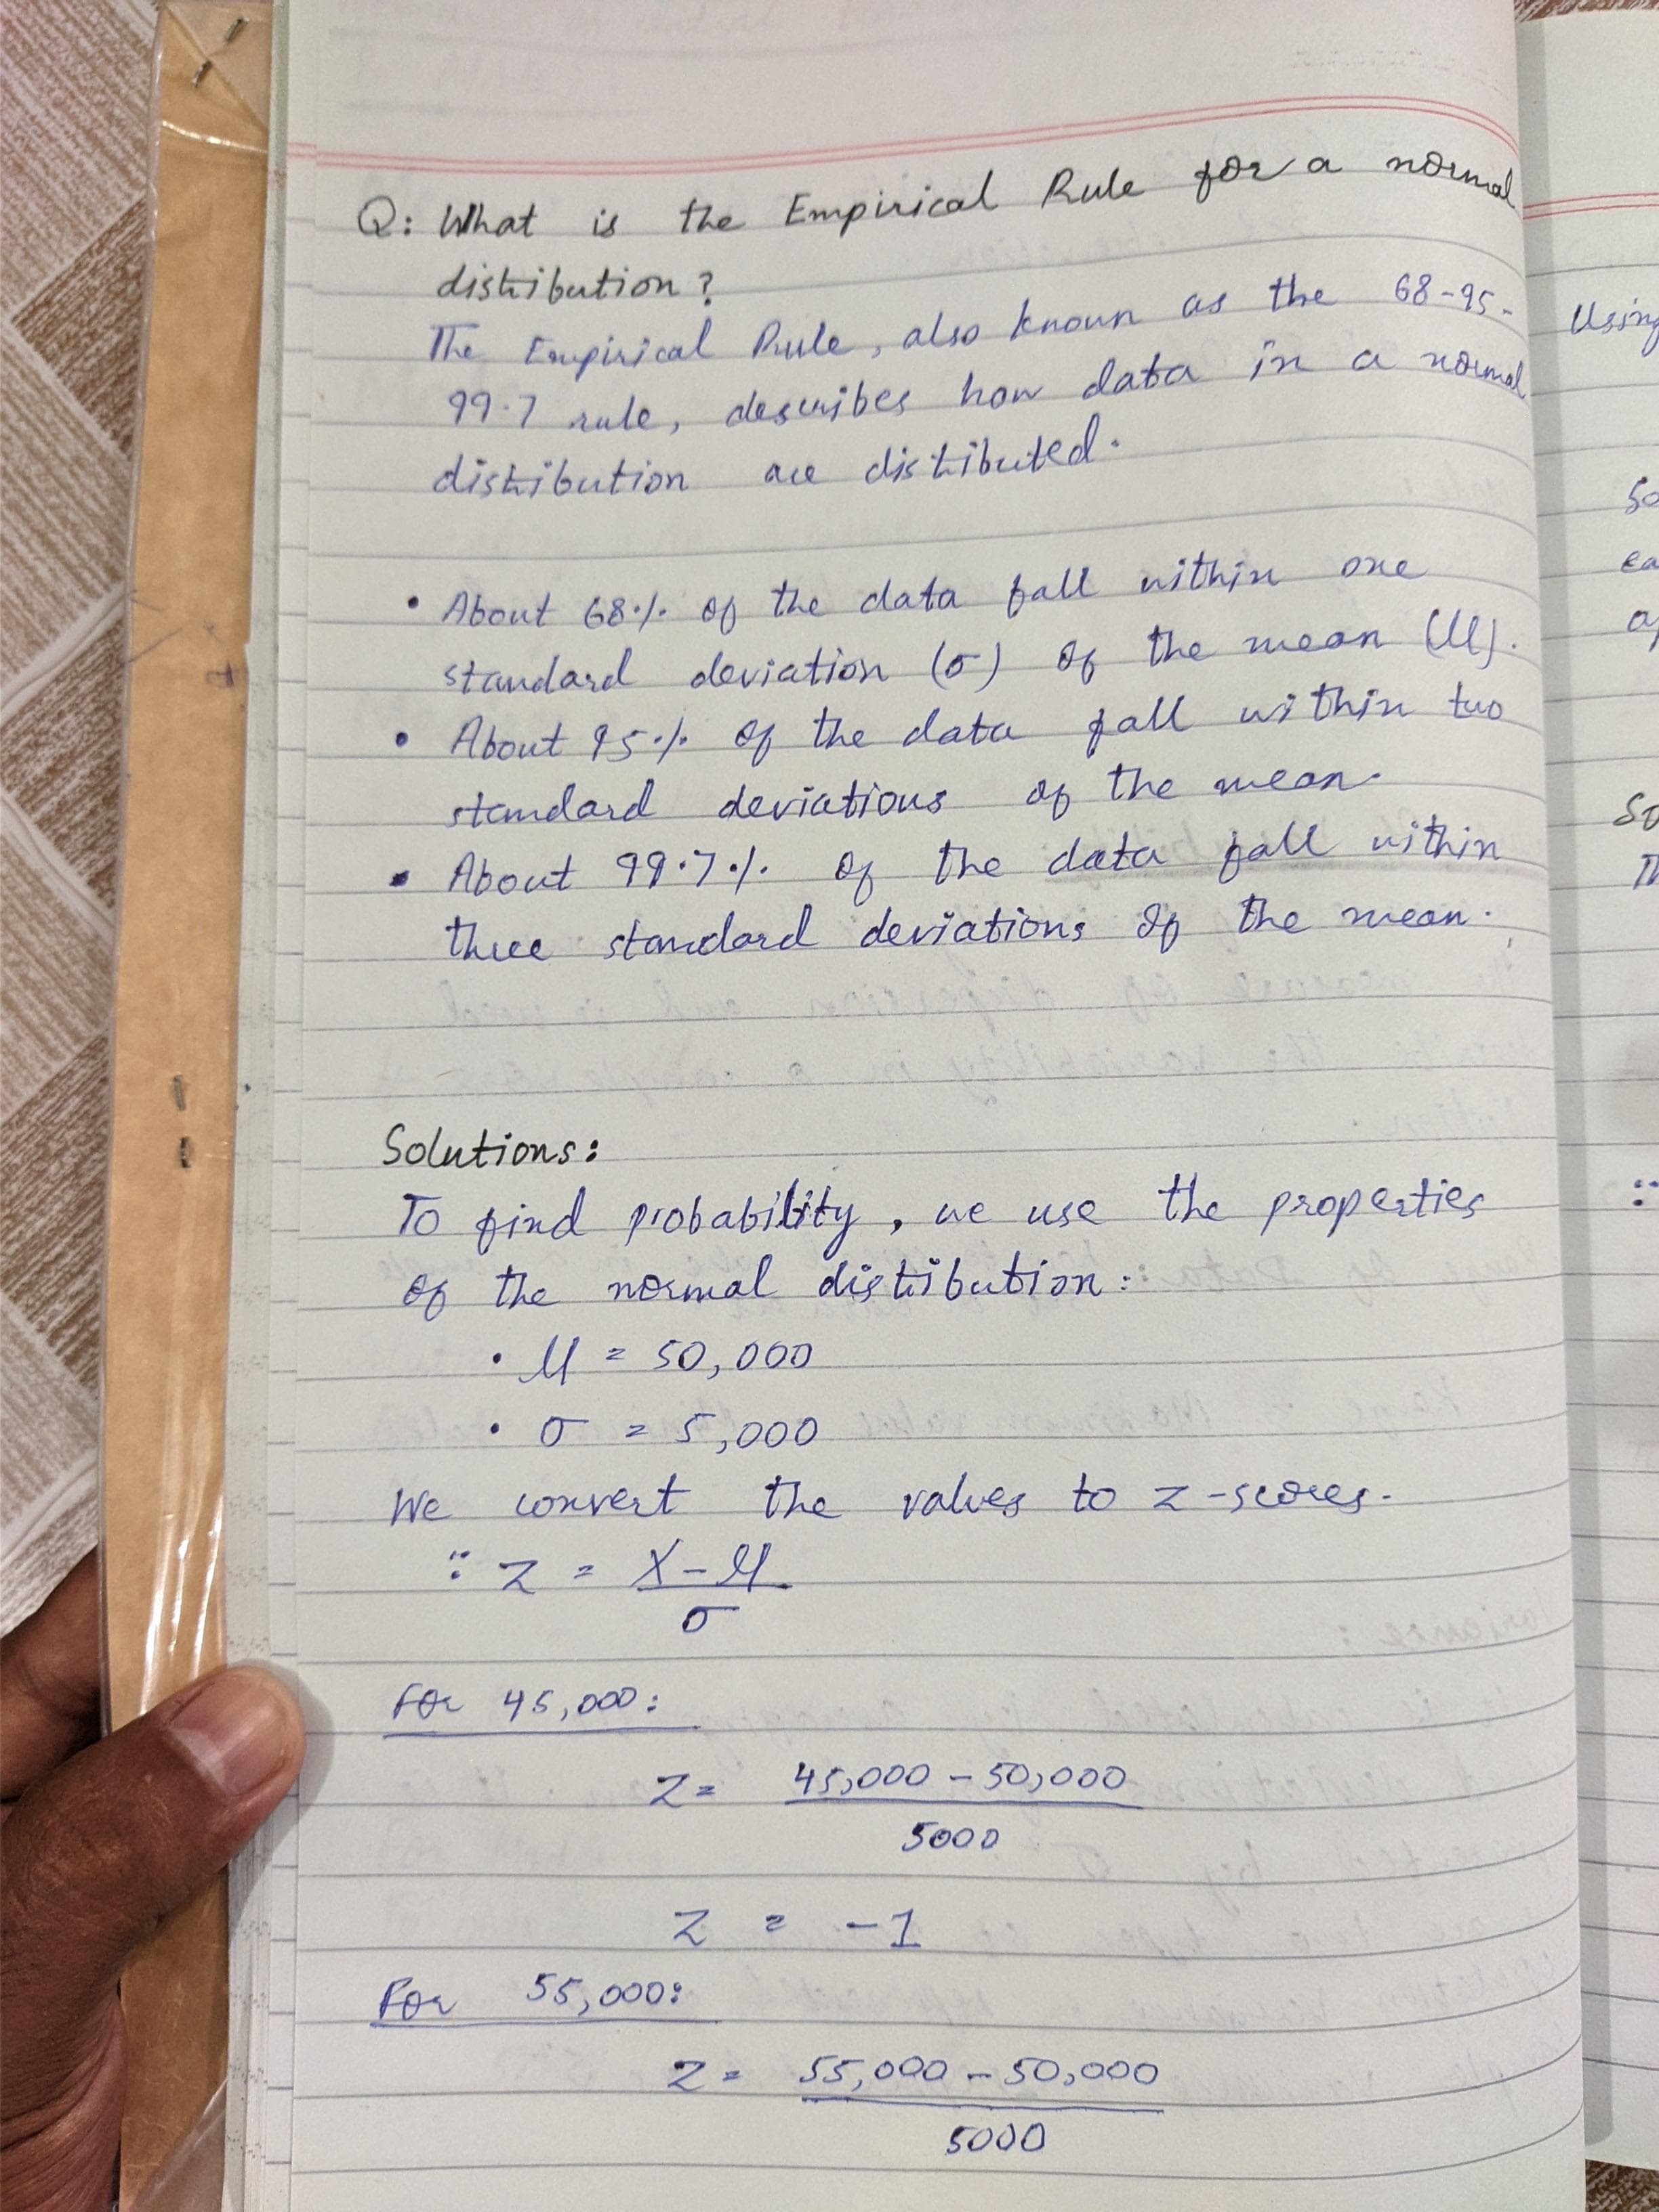 Q: What is the Empirical Rule for a normal
distribution?
The Empirical Rule, also known as the 68-95-
99.7 rule, describes how data in a normal
distribution are distributed.
• About 68% of the data fall within one
standard deviation (σ) of the mean (μ).
• About 95% of the data fall within two
standard deviations of the mean.
• About 99.7% of the data fall within
three standard deviations of the mean.
Solutions:
To find probability, we use the properties
of the normal distribution:
• μ = 50,000
• σ = 5,000
We convert the values to z-scores.
∵ z = X-μ
σ
For 45,000:
z = 45,000 - 50,000
5000
z = -1
For 55,000:
z = 55,000 - 50,000
5000
Using
So